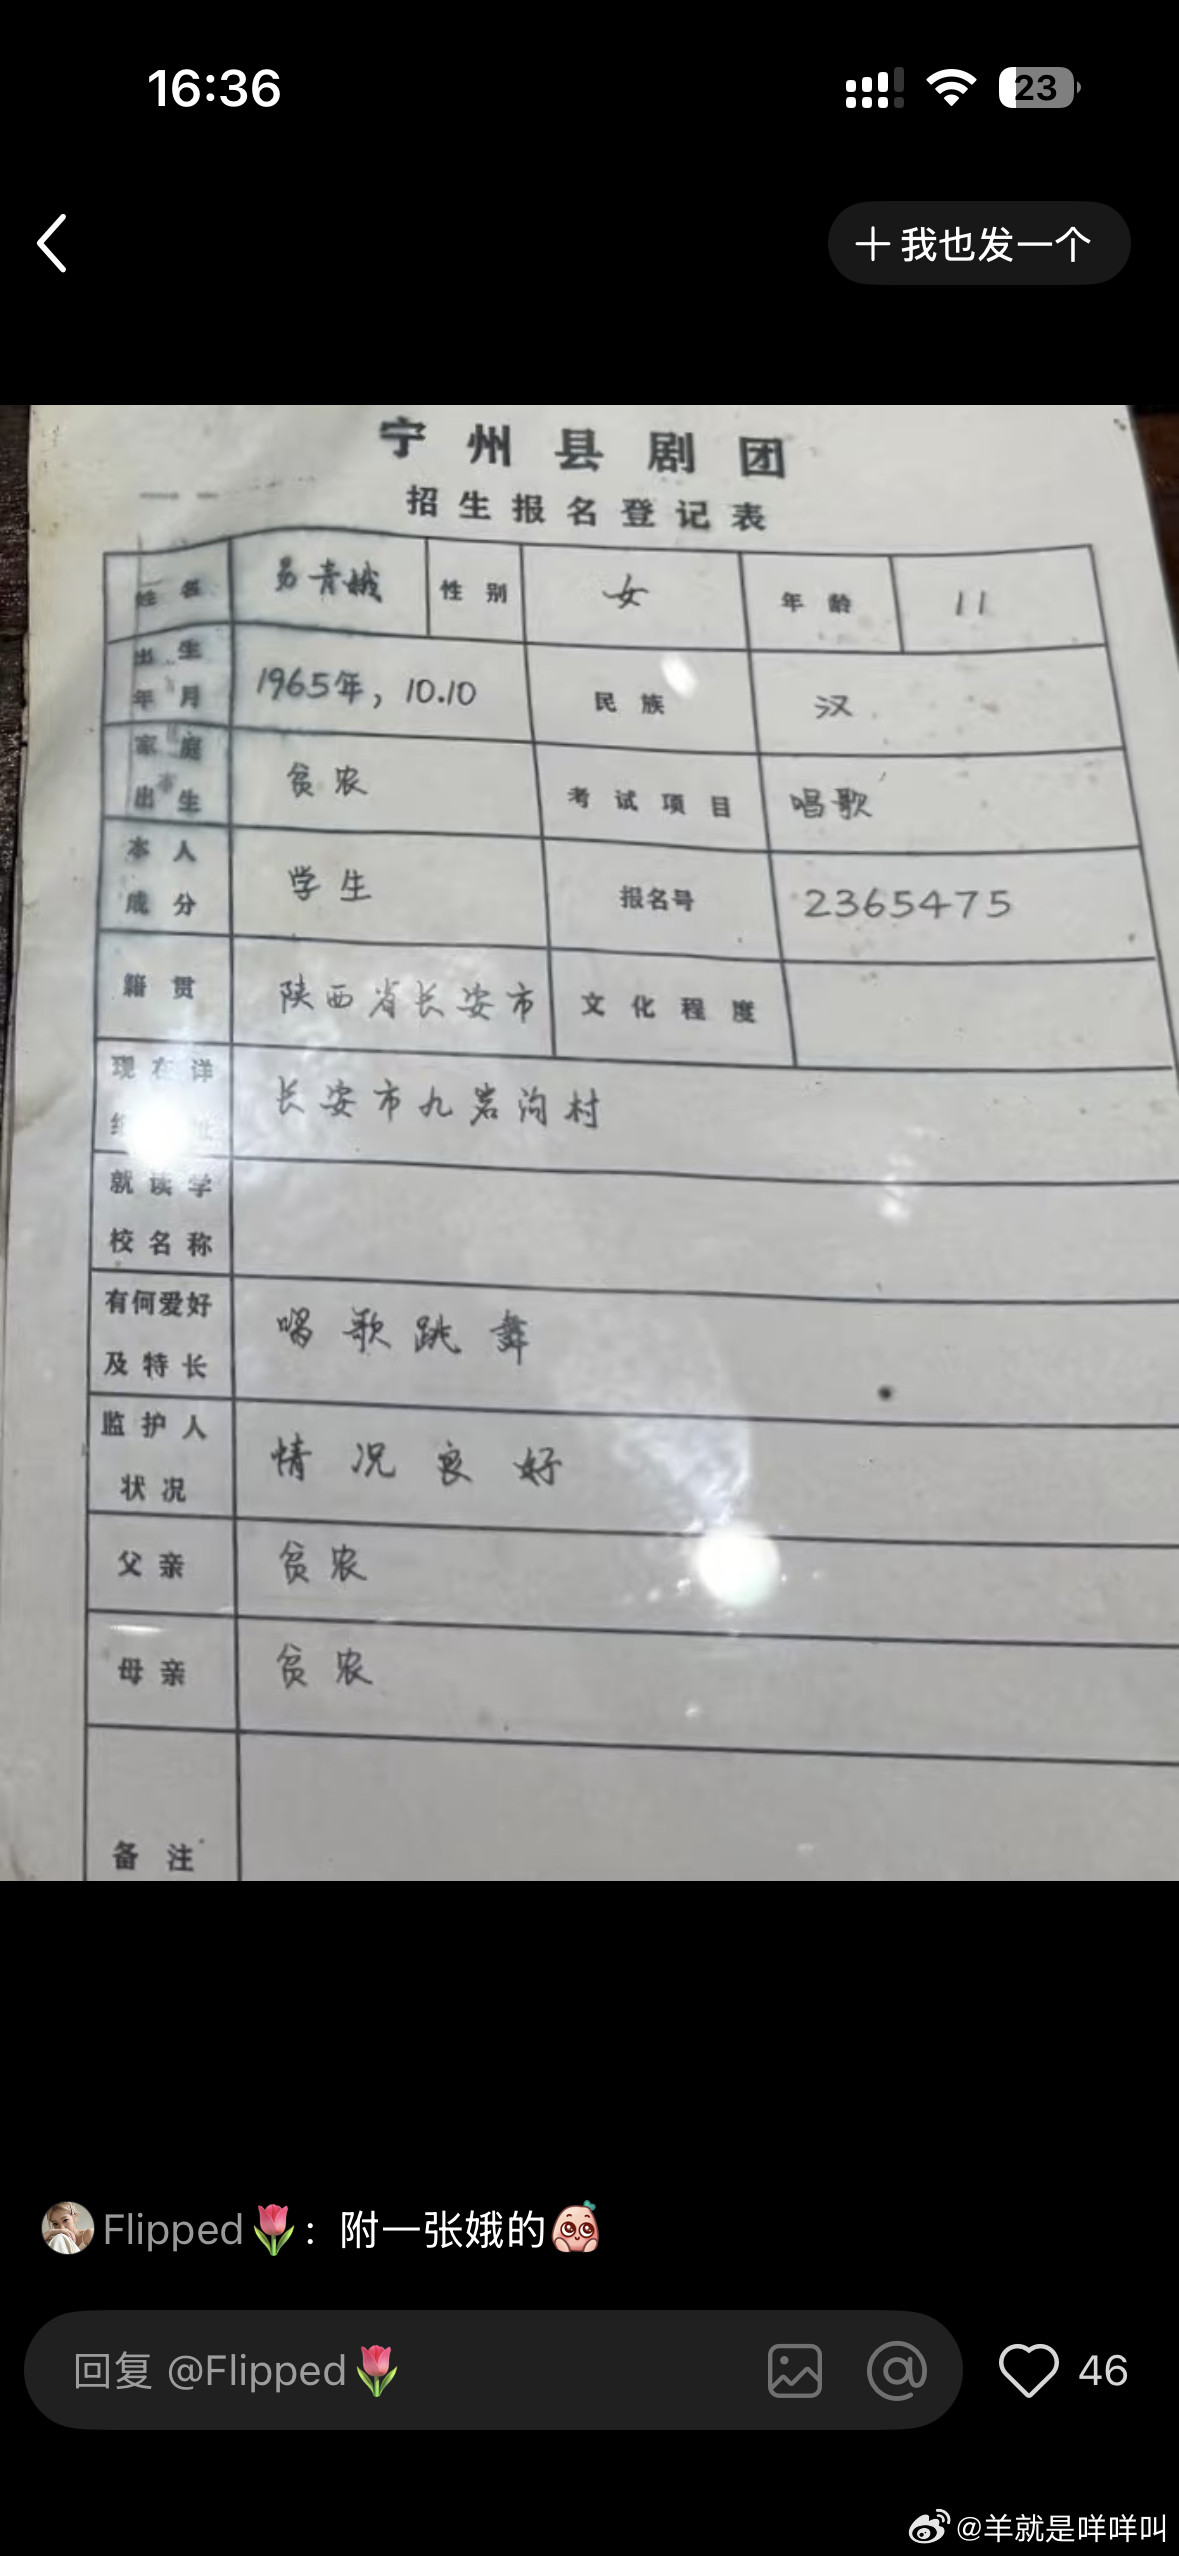 16:36
23
我也发一个
宁州县剧团
招生报名登记表
姓名 易青娥 性别 女 年龄 11
出生年月 1965年，10.10 民族 汉
家庭出生 贫农 考试项目 唱歌
本人成分 学生 报名号 2365475
籍贯 陕西省长安市 文化程度
现在详
长安市九岩沟村
就读学校名称
有何爱好及特长 唱歌跳舞
监护人状况 情况良好
父亲 贫农
母亲 贫农
备注
Flipped🌷：附一张娥的
回复 @Flipped🌷
46
@羊就是咩咩叫